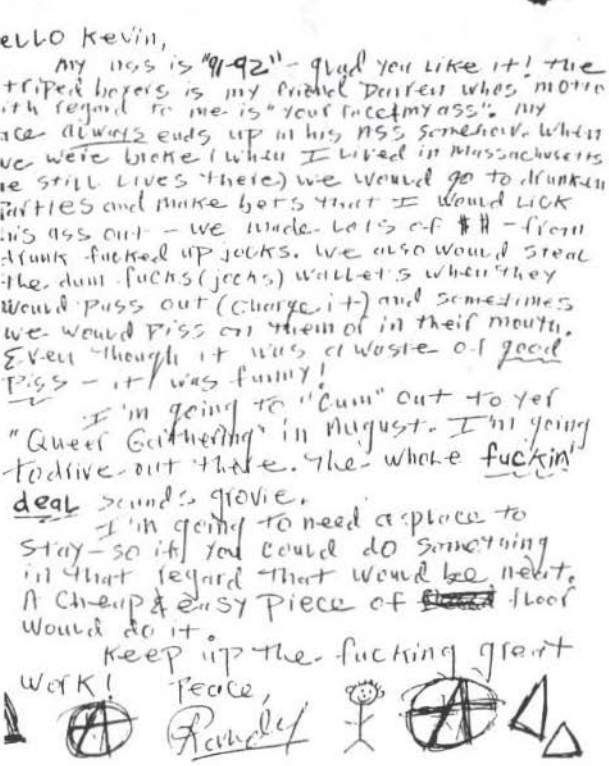 ello Kevin,
My ass is "91-92" - glad you like it! The
triped boxers is my friend Darren whos motto
ith regard to me is "your face & my ass". My
ace always ends up in his ass somehow. When
we were broke (when I lived in Massachusetts
he still lives there) we would go to drunken
Parties and make bets that I would Lick
his ass out - we made lots of $$ - from
drunk fucked up jocks. We also would steal
the dum fucks (jocks) wallets when they
would pass out (charge it) and sometimes
we would piss on them or in their mouth.
Even though it was a waste of good
piss - it was funny!
I'm going to "cum" out to yer
"Queer Gathering" in August. I'm going
to drive out there. The whole fuckin'
deal sounds grovie.
I'm going to need a place to
stay - so if you could do something
in that regard that would be neat.
A cheap & easy piece of floor
would do it.
Keep up the fucking great
work! Peace,
Randy